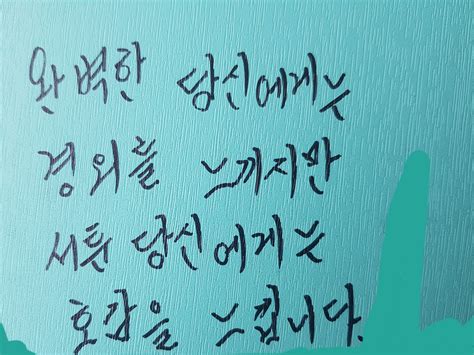 완벽한 당신에게는
경외를 느끼지만
서툰 당신에게는
호감을 느낍니다.